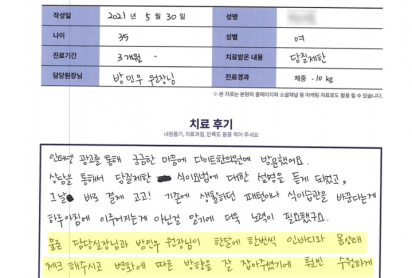 작성일 2021년 5월 30일 성명
나이 35 성별 여
진료기간 3개월 - 치료받은 내용 당질제한
담당원장님 방민우 원장님 진료경과 체중 -10kg
※ 본 자료는 본원의 홈페이지와 소셜채널 등 마케팅 자료로도 활용 될 수 있습니다.
치료 후기
내원동기, 치료과정, 만족도 등을 적어 주세요.
인터넷 광고를 통해 궁금한 마음에 다이트한의원에 방문했어요.
상담을 통해서 당질제한 식이요법에 대한 설명을 듣게 되었고,
그날 바로 결제 고고! 기존에 생활하던 패턴이나 식이습관을 바꾼다는게
하루아침에 이루어지는게 아닌걸 알기에 더욱 노력이 필요했구요.
물론 담당실장님과 방민우 원장님이 한달에 한번씩 인바디와 몸상태
체크 해주시고 변화에 따른 방향을 잘 잡아주셨기에 훨씬 수월하게